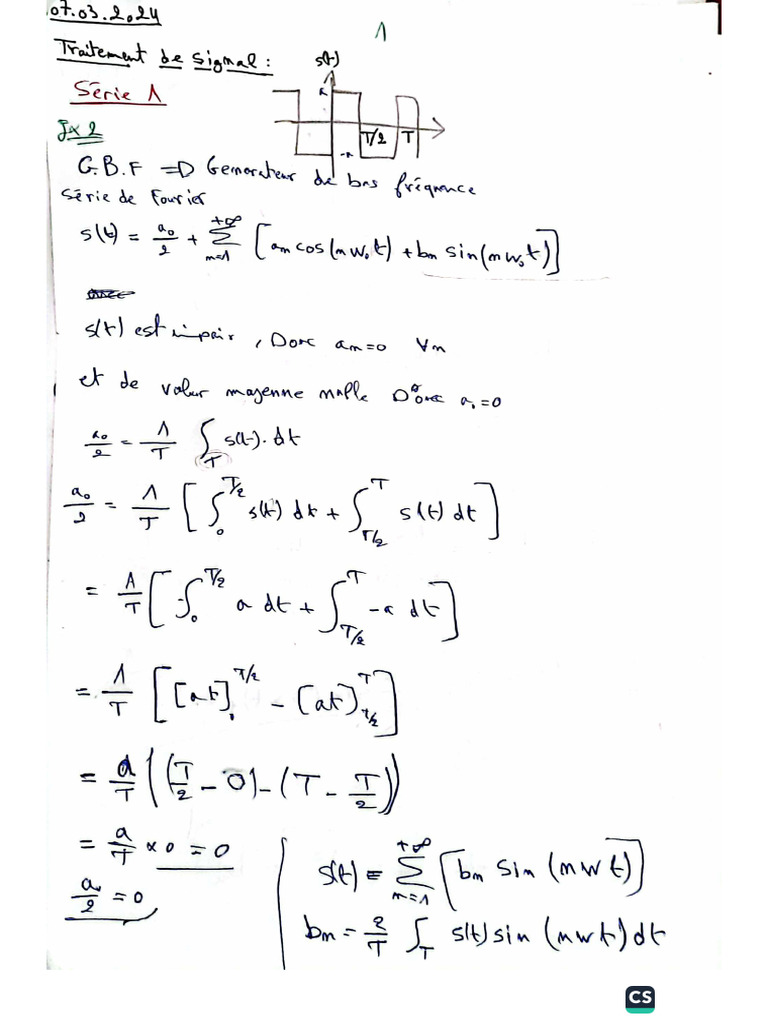 07.03.2024
1
Traitement de signal :
s(t)
a
Série 1
T/2 T
-a
Ex 2
G.B.F => Generateur de bas fréquence
Série de Fourier
s(t) = a₀/2 + Σ_{n=1}^{+∞} [an cos(nw₀t) + bn sin(nw₀t)]
s(t) est impair, Donc an=0 ∀n
et de valeur moyenne nulle Donc a₀=0
a₀/2 = 1/T ∫_T s(t).dt
a₀/2 = 1/T [∫_0^{T/2} s(t) dt + ∫_{T/2}^T s(t) dt]
= 1/T [∫_0^{T/2} a dt + ∫_{T/2}^T -a dt]
= 1/T [[at]_0^{T/2} - [at]_{T/2}^T]
= a/T ((T/2 - 0) - (T - T/2))
= a/T × 0 = 0
a₀/2 = 0
s(t) = Σ_{n=1}^{+∞} [bn sin(nwt)]
bn = 2/T ∫_T s(t) sin(nwt) dt
CS